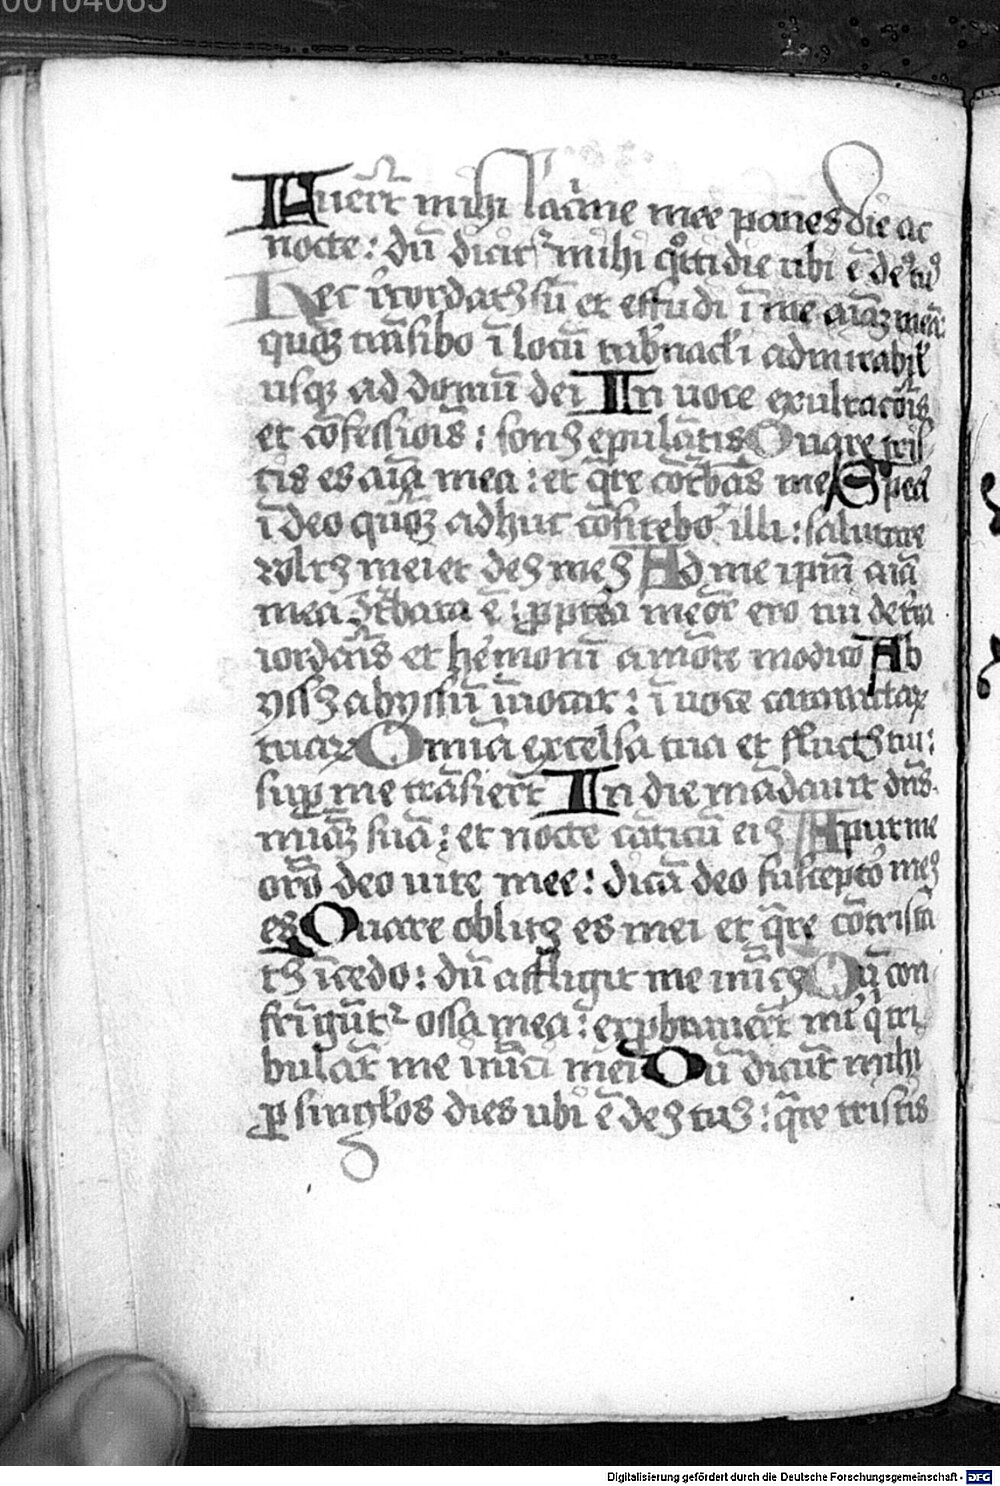 00104065
Fuerūt mihi lacͥme mee panes die ac
nocte: dū dicitᷣ mihi qͦtidie ubi ē deꝰ tuꝰ
Hec rͨordatꝰ sū et effudi ī me aīaꝫ meā:
quoꝫ trāsibo ī locū tab̕nacl̕i admirabil̕
usqꝫ ad domū dei In uoce exultacōis
et cōfessiōis: sonꝰ epulātis Quare tris
tis es aīa mea: et qͣre cōt̕bas me Spea
ī deo quoꝫ adhuc cōfitebor illi: salutare
vultꝰ mei et deꝰ meꝰ Ad me ipm̄ aīa
mea ꝯt̕bata ē: ꝓpt̕ea meōr ero tui de t̕ra
iordāis et hermonī a mōte modico Ab
yssꝰ abyssū īuocat: ī uoce cataractaꝝ
tuaꝝ Omīa excelsa tua et fluctꝰ tui:
suꝑ me trāsierūt In die mādauit dn̄s
mīaꝫ suā: et nocte cāticū eiꝰ Aput me
orō deo uite mee: dicā deo susceptor meꝰ
es Quare oblitꝰ es mei et qͣre cōtrista
tꝰ īcedo: dū affligit me īmicꝰ Dū con
frīgūtᷣ ossa mea: exꝓbrauerūt mͥ qͥ tri
bulāt me īmici mei Dū dicūt mihi
ꝑ singl̕os dies ubi ē deꝰ tuꝰ: qͣre tristis
Digitalisierung gefördert durch die Deutsche Forschungsgemeinschaft - DFG